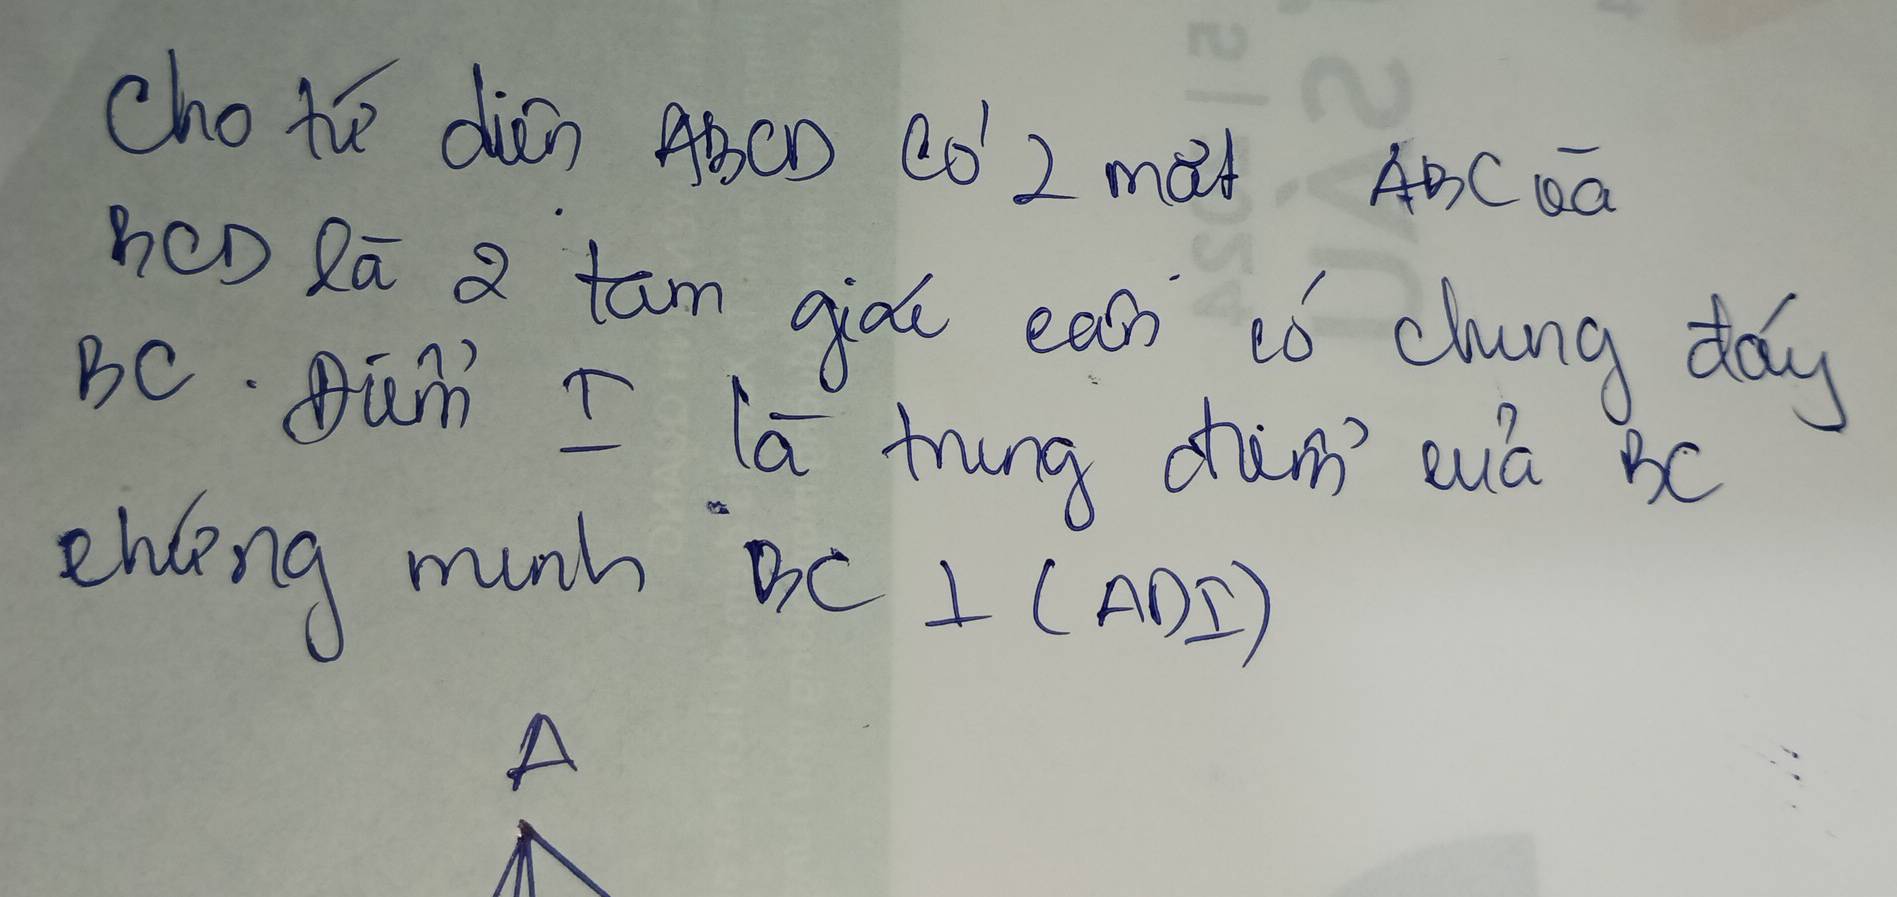 Cho tứ diện ABCD có 2 mặt ABC và
BCD là 2 tam giác cân có chung đáy
BC. Điểm I là trung điểm của BC
chứng minh BC ⊥ (ADI)
A